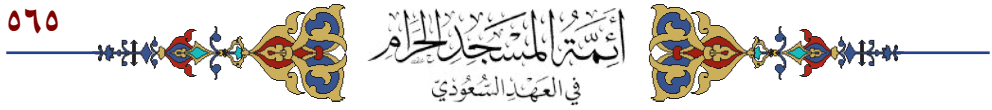 ٥٦٥
أَئِمَّةُ المَسْجِدِ الحَرَامِ
فِي العَهْدِ السُّعُودِيّ